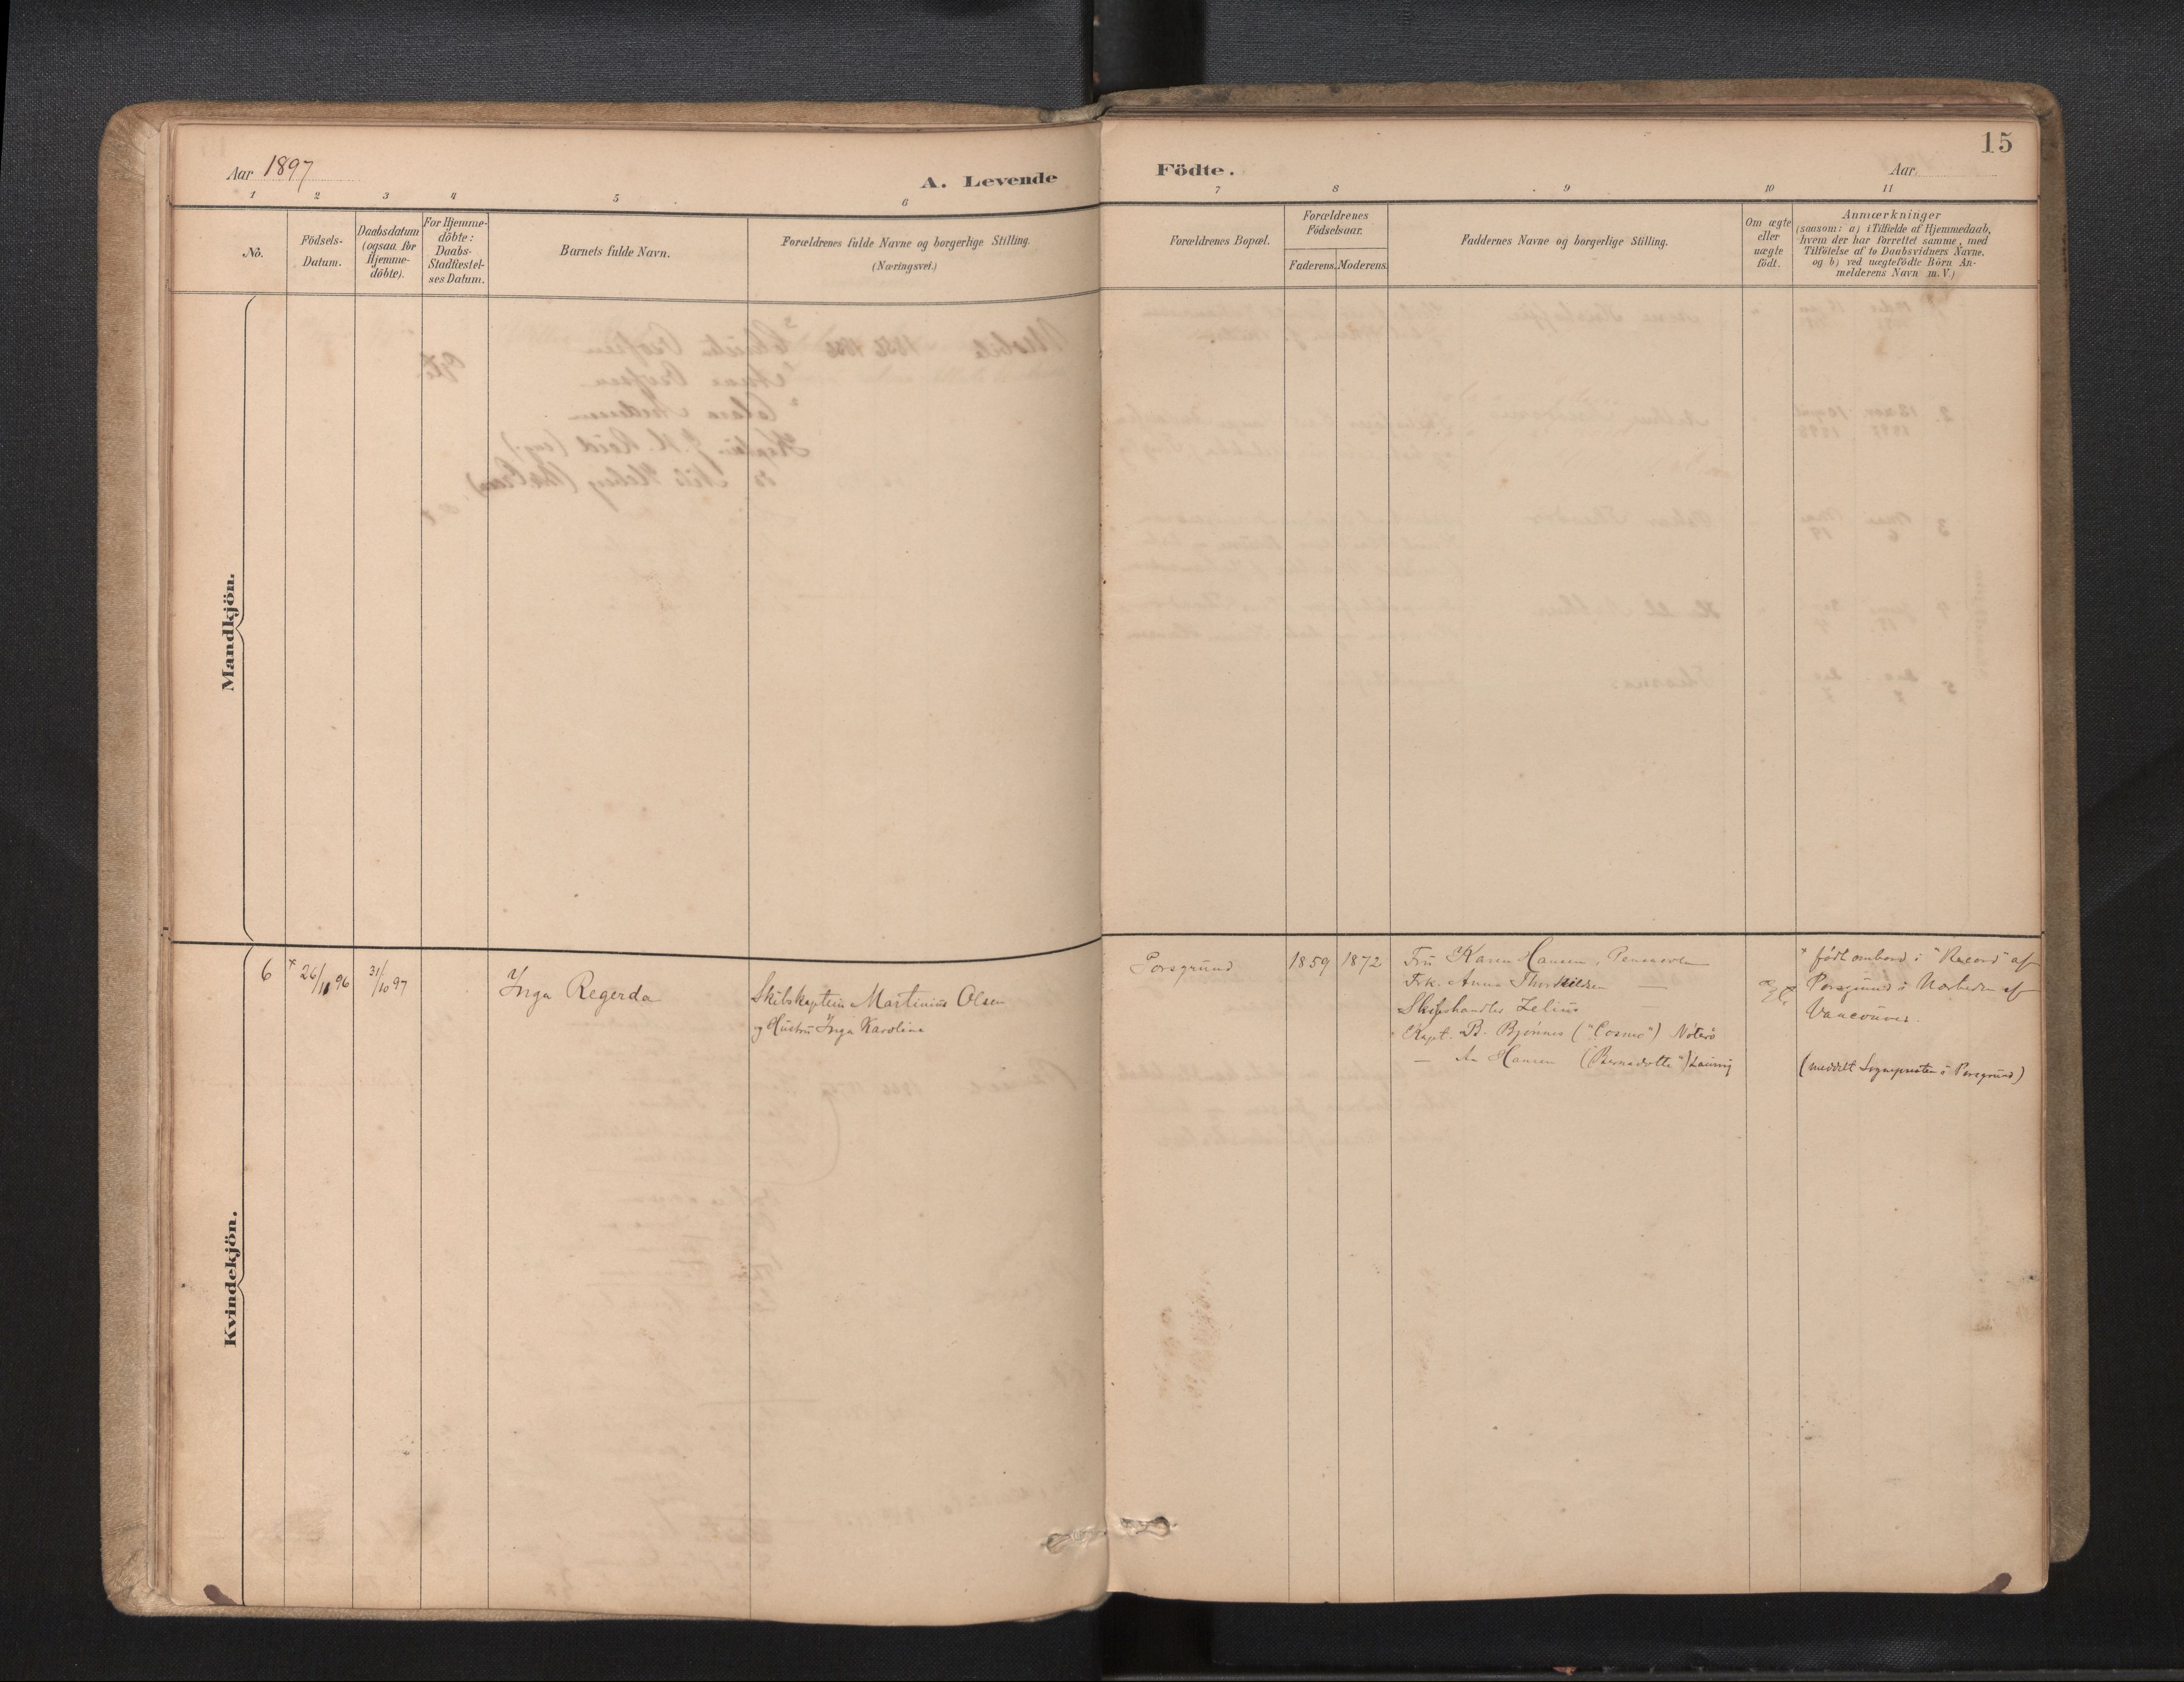 15
Aar 1897
A. Levende
Födte.
Aar
1 2 3 4 5 6 7 8 9 10 11
No.
Födsels-
Datum.
Daabsdatum
(ogsaa for
Hjemme-
döbte).
For Hjemme-
döbte:
Daabs-
Stadfæstel-
ses Datum.
Barnets fulde Navn.
Forældrenes fulde Navne og borgerlige Stilling.
(Næringsvei.)
Forældrenes Bopæl.
Forældrenes
Födselsaar.
Faderens.
Moderens.
Faddernes Navne og borgerlige Stilling.
Om ægte
eller
uægte
födt.
Anmærkninger
(saasom: a) i Tilfælde af Hjemmedaab,
hvem der har forrettet samme, med
Tilföielse af to Daabsvidners Navne,
og b) ved uægtefödte Börn An-
melderens Navn m.V.)
Mandkjön.
Kvindekjön.
6
× 26/11 96
31/10 97
Inga Regerda
Skibskaptein Martinius Olsen
og Hustru Inga Karoline
Porsgrund
1859
1872
Fru Karen Hansen,
Frk. Anna Thorkildsen —
Skibshandler Zelius
Kapt. B. Bjönnes ("Cosmo") Nöterö
— Hansen (Bernadotte")
× födt ombord i "Record" af
Porsgrund i Nærheden af
Vancouver.
(meddelt Sognepresten i Porsgrund)